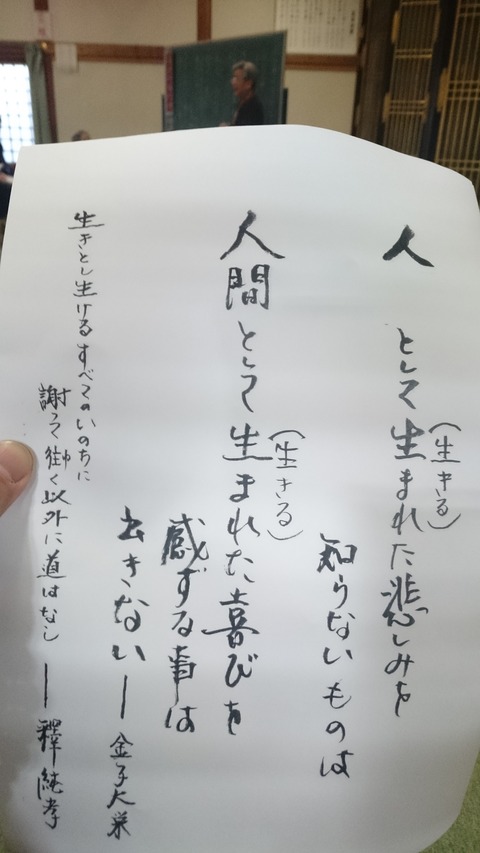 人 として生まれた悲しみを
(生きる)
知らないものは
人間として生まれた喜びを
(生きる)
感ずる事は
出きない — 金子大栄
生きとし生けるすべてのいのちに
謝って御く以外に道はなし — 釋純孝